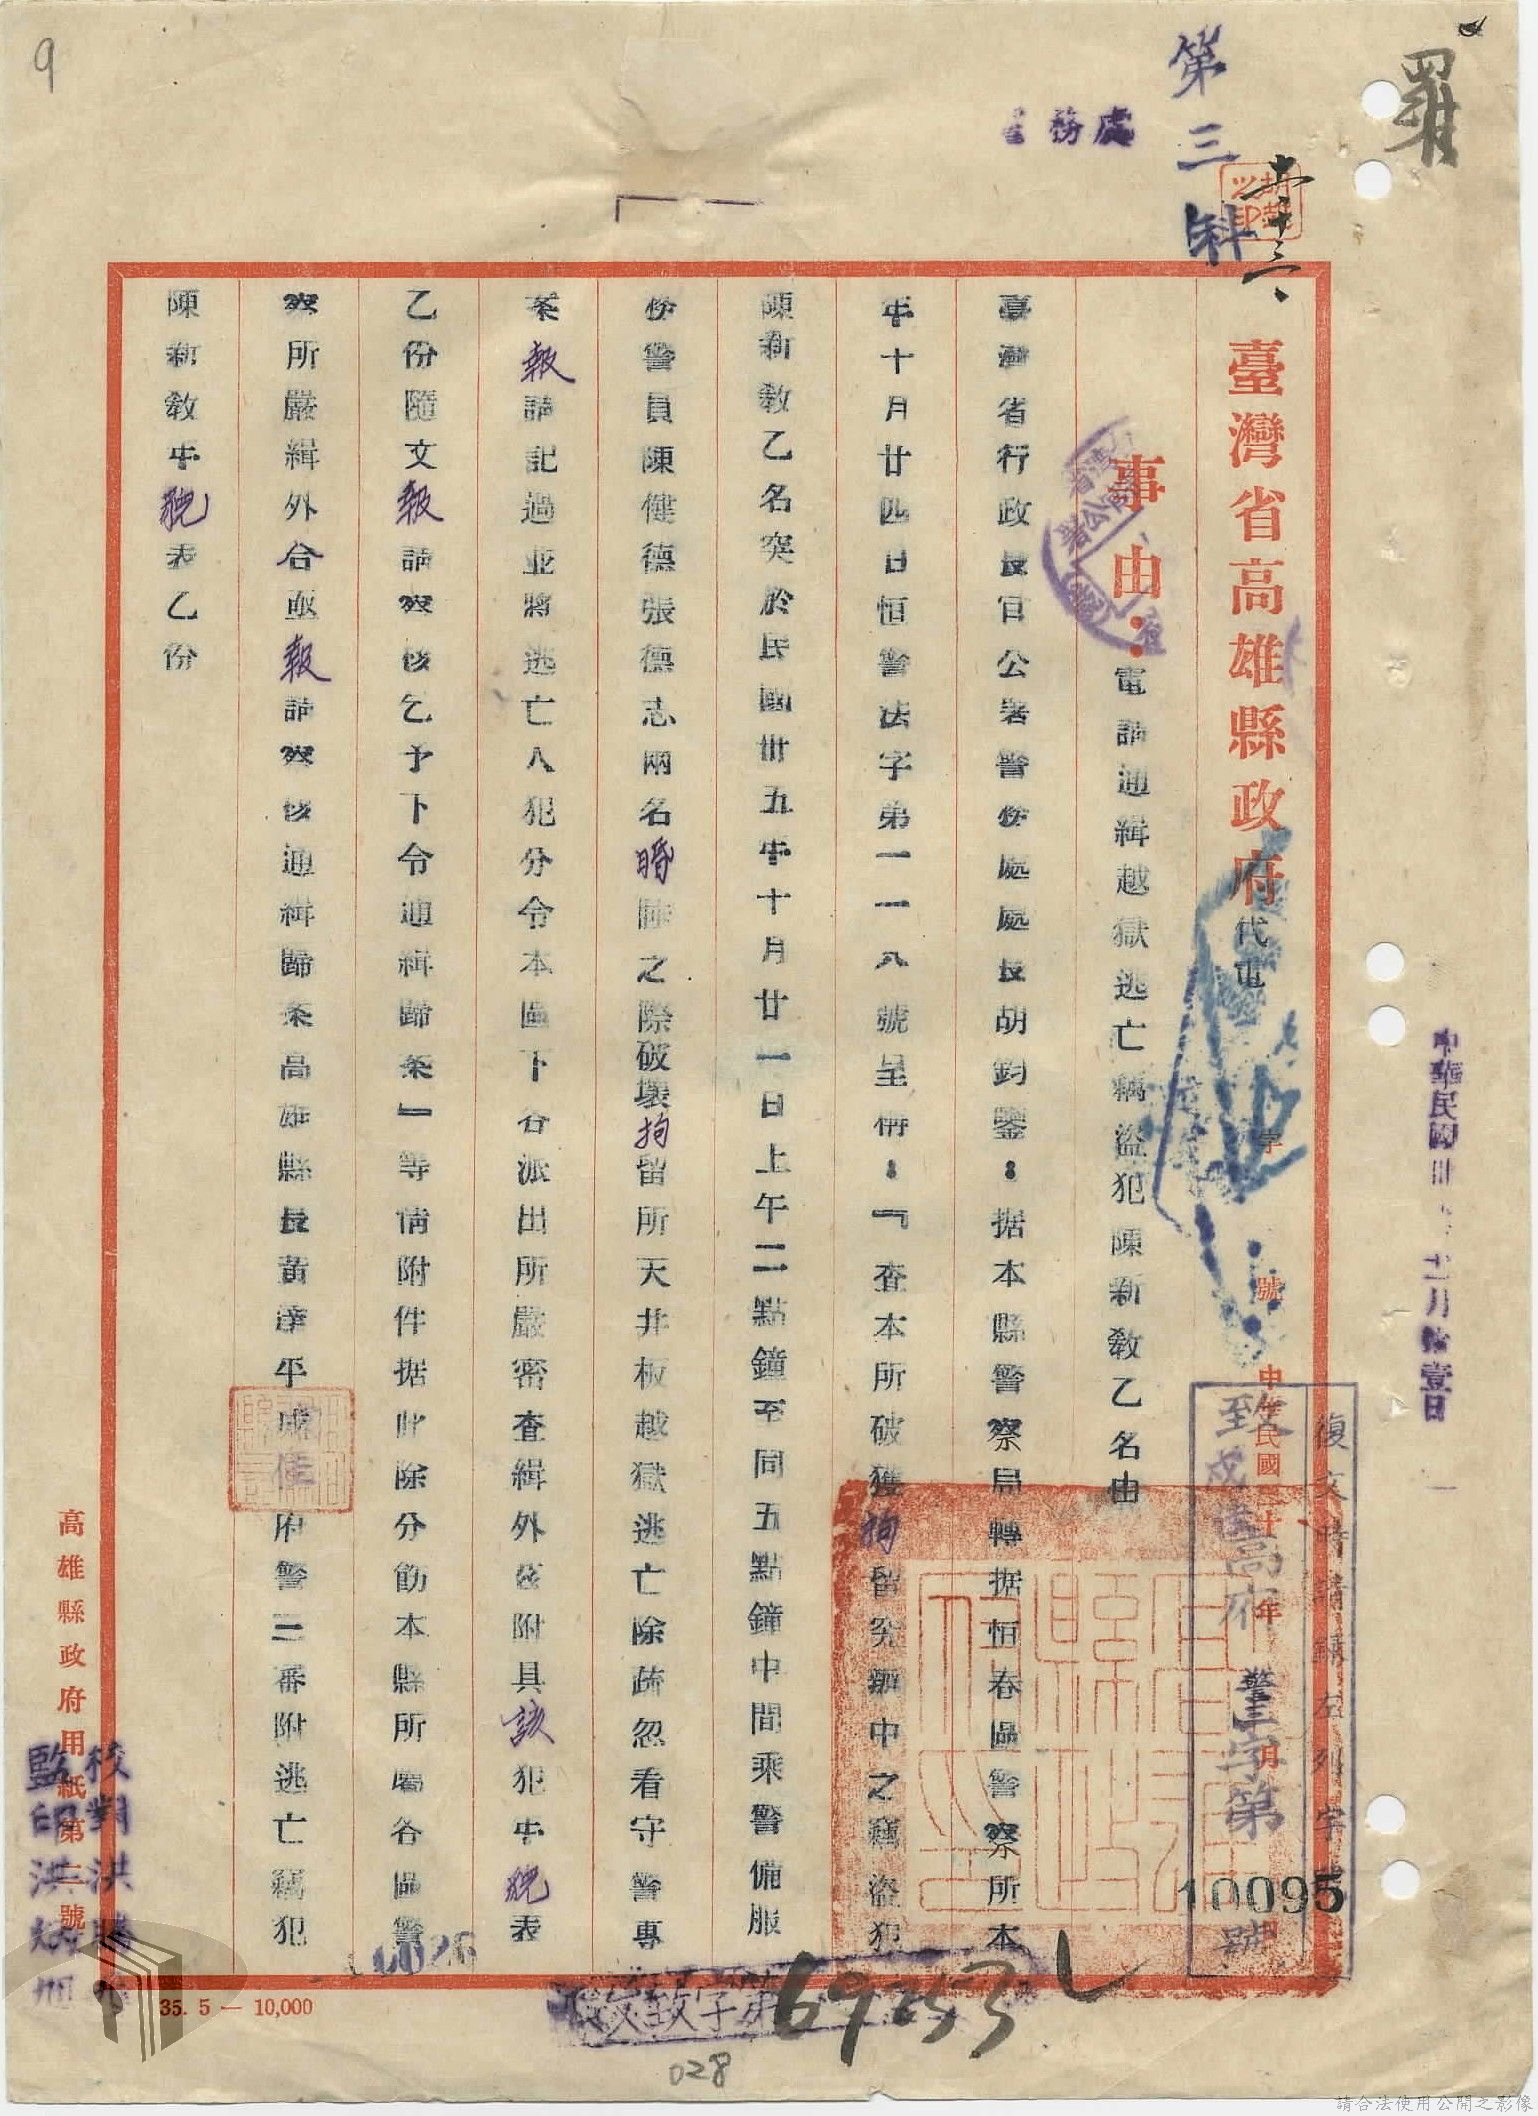 9
羅
第三科
務處
十一、十三、
臺灣省高雄縣政府代電
字 號
中華民國 十 年 月
復文時請 左列字
致 高府警三字第
10095
號
事由：電請通緝越獄逃亡竊盜犯陳新教乙名由
臺灣省行政長官公署警务處處長胡鈞鑒：据本縣警察局轉据恒春區警察所本
年十月廿四日恒警法字第一一一八號呈稱：『查本所破獲拘留究辦中之竊盜犯
陳新教乙名突於民國卅五年十月廿一日上午二點鐘至同五點鐘中間乘警備服
务警員陳健德張德志兩名昏睡之際破壞拘留所天井板越獄逃亡除疏忽看守警專
案報請記過並將逃亡人犯分令本區下各派出所嚴密查緝外茲附具該犯年貌表
乙份隨文報請察核乞予下令通緝歸案』等情附件据此除分飭本縣所屬各區警
察所嚴緝外合亟報請察核通緝歸案高雄縣長黃達平戍佳府警三番附逃亡竊犯
陳新教年貌表乙份
中華民國卅 年十一月拾壹日
高雄縣政府用紙第一號
校對洪勝
監印洪
35. 5 — 10,000
0026
致字第
69233
028
請合法使用公開之影像